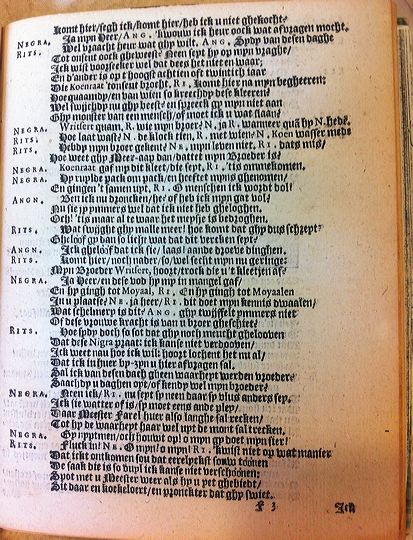 Komt hier/segh ick/komt hier/heb ick u niet ghekocht?
NEGRA. Ja mijn Heer/ ANG. 'kwouw ick heur oock wat afvragen mocht.
RITS. Wel vraecht heur wat ghy wilt. ANG. Sydy van desen daghe
Tot onsent oock gheweest? Neen sept hy op mijn vraghe/
Ick wist voorseker wel dat dees het niet en waar;
En d'ander is op 't hoogst achtien oft twintich jaar
Die Koenraat 'tonsent brocht, RI. Komt hier na mijn begheeren:
Hoe quaamdy/en van wien so kreechdy dese kleeren?
Wel swijchdy nu ghy beest? en spreeck gy mijn niet aan
Ghy monster van een mensch/of moet ick u wat slaan?
NEGRA. Wrifert quam, R. wie mijn broer? N. ja R. wanneer quā hy N. hedē.
RITS. Hoe laat wast? N. de klock tien, R. met wien? N. Koen wasser mede
RITS. Hebdy mijn broer gekent? NE. mijn leven niet, RI. dats mis/
Hoe weet ghy Meer-aap dan/dattet mijn Broeder is?
NEGRA. Koenraat gaf mijn dit kleet/die sept, RI. 'tis om mekomen.
NEGRA. Hy ruylde pack om pack/en heeftet mijns ghenomen/
En gingen t'samen upt, RI. O menschen ick wordt dol!
ANGN. Ben ick nu droncken/he? of heb ick mijn gat vol?
Nu sie jy ymmers wel dat ick niet heb gheloghen.
Och! 'tis maar al te waar het meysje is bedroghen.
RITS. Wat swijght ghy malle meer? hoe komt dat ghy dus schrept?
Gheloof gy dan so licht wat dit vercken sept?
ANGN. Ick gheloof dat ick sie/laas! aande droeve dinghen.
RITS. Komt hier/noch nader/so/wel secht mijn nu geringe:
Mijn Broeder Wrifert, hoort/trock die u 't kleetjen af?
NEGRA. Ja Heer/en dese vod hy mijn in mangel gaf/
En hy gingh tot Moyaal, RI. En hy gingh tot Moyaalen
In u plaatse? NE. ja heer/ RI. dit doet mijn kennis dwaalen/
Wat schelmery is dit? ANG. ghy twijffelt ymmers niet
Of dese vrouwe kracht is van u broer gheschiet?
RITS. Hoe sydy doch so sot dat ghy noch meucht ghelooven
Dat dese Nigra praat: ick kanse niet verdooven/
Ick weet nau hoe ick wil: hoort lochent het nu al/
Dat ick in heur by-zijn u hier afvragen sal.
Sal ick van desen dach gheen waarheyt werden broeder?
Saachdy u daghen oyt/of kendy wel mijn broeder?
NEGRA. Neen ick/ RI. nu sept sy neen daar sy flus anders sey.
Ick sie watter of is/sy moet eens ande pley/
Daar Meester Farel heur also langhe sal recken/
Tot hy de waarheyt haar wel upt de mont sal trecken.
NEGRA. Gy nypt mijn/och houwt op! o mijn gy doet mijn sier!
RITS. Fluck in! NE. O mijn! o mijn! RI. 'kwist niet op wat manier
Dat ickt ontkomen sou dat eerelyckst souw toonen
De saak die is so vuyl ick kanse niet verschoonen:
Spot met u Meester weer als hy u yet ghebiedt/
Sit daar en koekeloert/en pronckter dat ghy swiet.
F 3 Ick